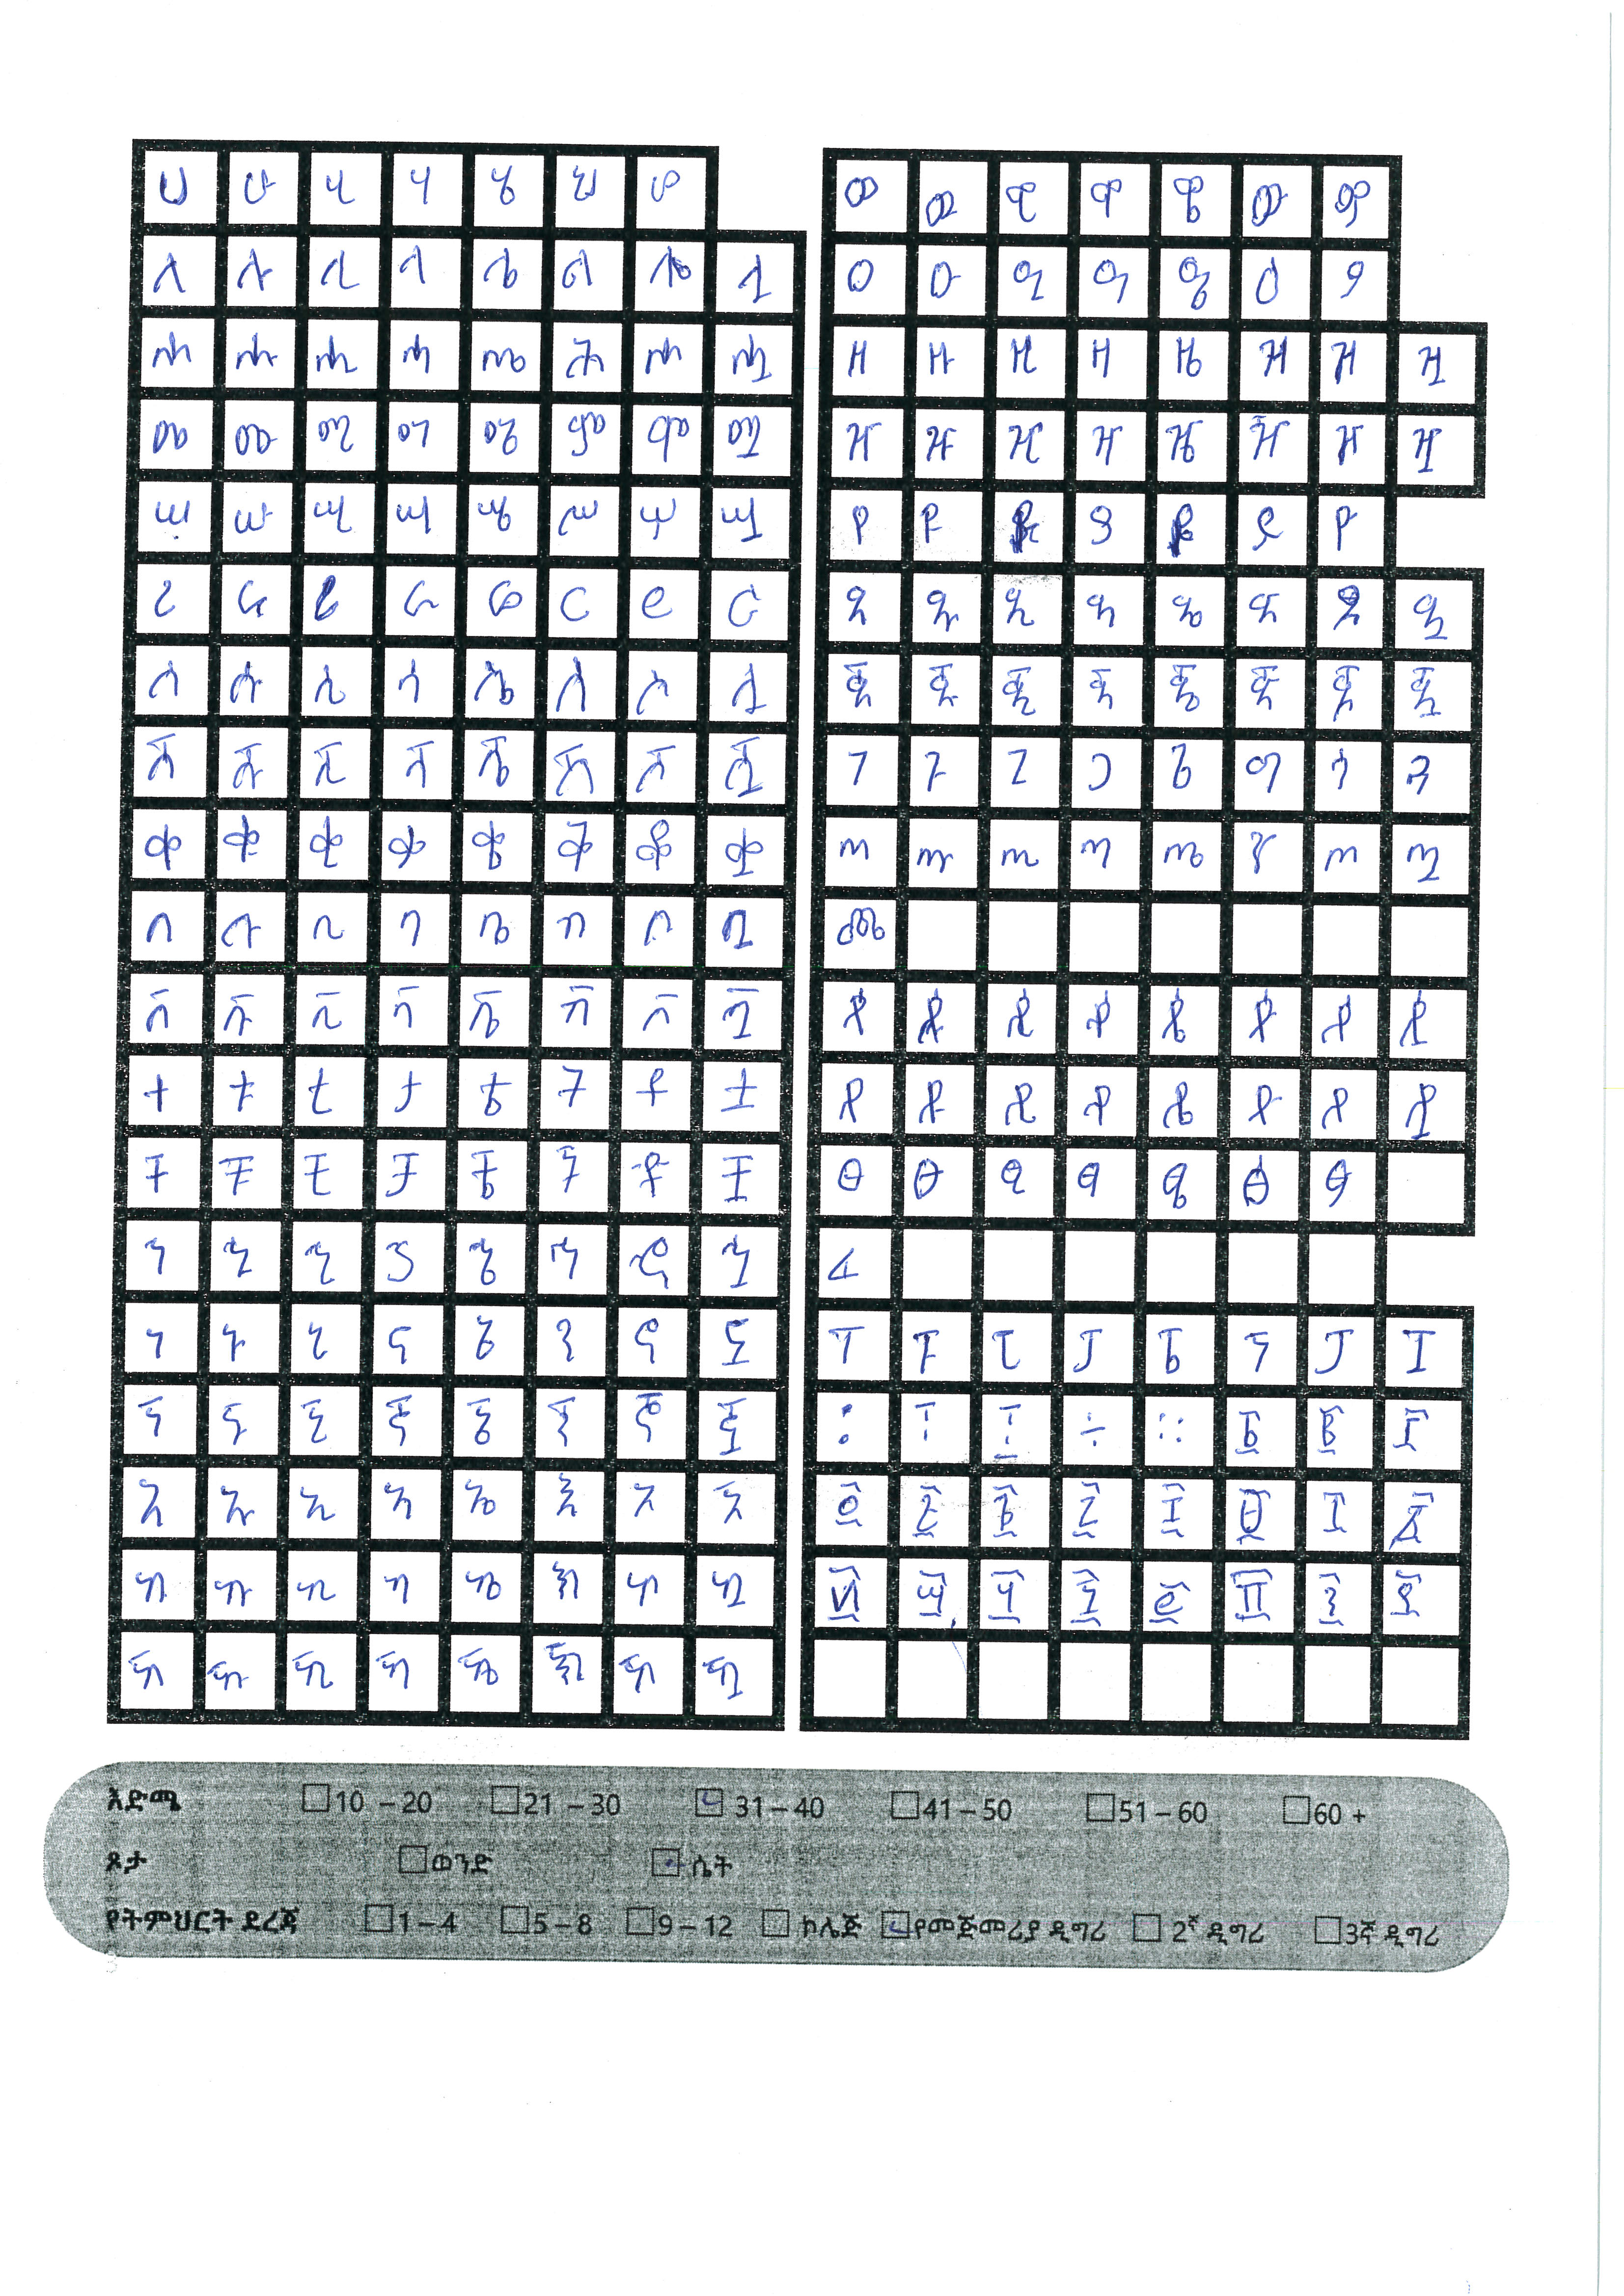 ሀ ሁ ሂ ሃ ሄ ህ ሆ
ለ ሉ ሊ ላ ሌ ል ሎ ሏ
ሐ ሑ ሒ ሓ ሔ ሕ ሖ ሗ
መ ሙ ሚ ማ ሜ ም ሞ ሟ
ሠ ሡ ሢ ሣ ሤ ሥ ሦ ሧ
ረ ሩ ሪ ራ ሬ ር ሮ ሯ
ሰ ሱ ሲ ሳ ሴ ስ ሶ ሷ
ሸ ሹ ሺ ሻ ሼ ሽ ሾ ሿ
ቀ ቁ ቂ ቃ ቄ ቅ ቆ ቋ
በ ቡ ቢ ባ ቤ ብ ቦ ቧ
ቨ ቩ ቪ ቫ ቬ ቭ ቮ ቯ
ተ ቱ ቲ ታ ቴ ት ቶ ቷ
ቸ ቹ ቺ ቻ ቼ ች ቾ ቿ
ኀ ኁ ኂ ኃ ኄ ኅ ኆ ኋ
ነ ኑ ኒ ና ኔ ን ኖ ኗ
ኘ ኙ ኚ ኛ ኜ ኝ ኞ ኟ
አ ኡ ኢ ኣ ኤ እ ኦ ኧ
ከ ኩ ኪ ካ ኬ ክ ኮ ኳ
ኸ ኹ ኺ ኻ ኼ ኽ ኾ ዃ
ወ ዉ ዊ ዋ ዌ ው ዎ
ዐ ዑ ዒ ዓ ዔ ዕ ዖ
ዘ ዙ ዚ ዛ ዜ ዝ ዞ ዟ
ዠ ዡ ዢ ዣ ዤ ዥ ዦ ዧ
የ ዩ ዪ ያ ዬ ይ ዮ
ደ ዱ ዲ ዳ ዴ ድ ዶ ዷ
ጀ ጁ ጂ ጃ ጄ ጅ ጆ ጇ
ገ ጉ ጊ ጋ ጌ ግ ጎ ጓ
ጠ ጡ ጢ ጣ ጤ ጥ ጦ ጧ
ጨ
ጰ ጱ ጲ ጳ ጴ ጵ ጶ ጷ
ጸ ጹ ጺ ጻ ጼ ጽ ጾ ጿ
ፀ ፁ ፂ ፃ ፄ ፅ ፆ
ፈ
ፐ ፑ ፒ ፓ ፔ ፕ ፖ ፗ
፡ ፣ ፤ ÷ ። ፩ ፪ ፫
፬ ፭ ፮ ፯ ፰ ፱ ፲ ፳
፴ ፵ ፶ ፷ ፸ ፹ ፺ ፻
እድሜ 10 – 20 21 – 30 31 – 40 41 – 50 51 – 60 60 +
ጾታ ወንድ ሴት
የትምህርት ደረጃ 1 – 4 5 – 8 9 – 12 ኮሌጅ የመጀመሪያ ዲግሪ 2ኛ ዲግሪ 3ኛ ዲግሪ